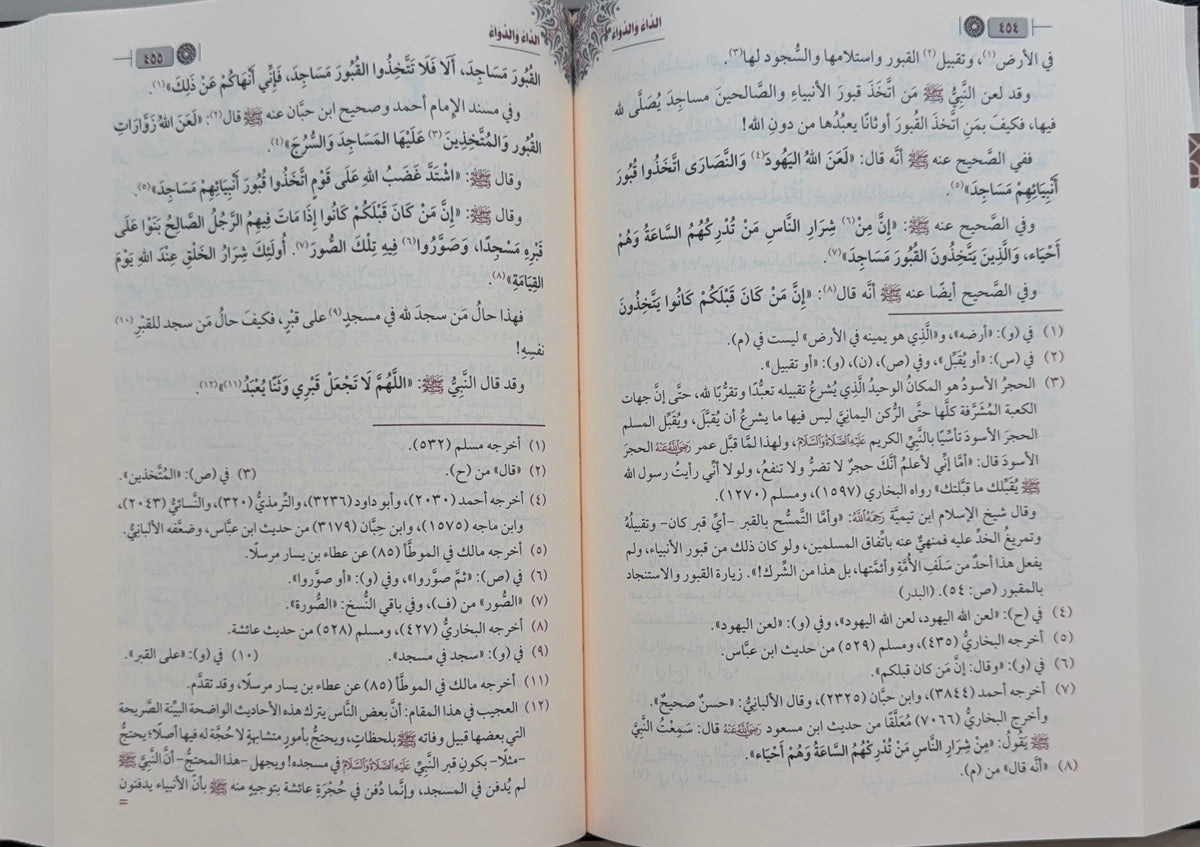 ٤٥٤
الداء والدواء
في الأرض(١)، وتقبيل(٢) القبور واستلامها والسُّجود لها(٣).
وقد لعن النَّبيُّ ﷺ مَن اتَّخَذَ قبورَ الأنبياءِ والصَّالحينَ مساجدَ يُصَلَّى لله
فيها، فكيفَ بمَن اتَّخذَ القُبورَ أوثانًا يعبُدُها من دونِ الله!
ففي الصَّحيح عنه ﷺ أنَّه قال: «لَعَنَ اللهُ اليَهُودَ(٤) وَالنَّصَارَى اتَّخَذُوا قُبُورَ
أَنْبِيَائِهِمْ مَسَاجِدَ»(٥).
وفي الصَّحيح عنه ﷺ: «إِنَّ مِنْ(٦) شِرَارِ النَّاسِ مَنْ تُدْرِكُهُمُ السَّاعَةُ وَهُمْ
أَحْيَاء، وَالَّذِينَ يَتَّخِذُونَ القُبُورَ مَسَاجِدَ»(٧).
وفي الصَّحيح أيضًا عنه ﷺ أنَّه قال(٨): «إِنَّ مَنْ كَانَ قَبْلَكُمْ كَانُوا يَتَّخِذُونَ
(١) في (و): «أرضه»، و«الَّذي هو يمينه في الأرض» ليست في (م).
(٢) في (س): «أو يُقبِّل»، وفي (ص)، (ن)، (و): «أو تقبيل».
(٣) الحجرُ الأسودُ هو المكانُ الوحيدُ الَّذي يُشرعُ تقبيله تعبُّدًا وتقرُّبًا لله، حتَّى إنَّ جهات
الكعبة المُشَرَّفة كلَّها حتَّى الرُّكن اليمانيَّ ليس فيها ما يشرعُ أن يُقبَّلَ، ويُقبِّل المسلم
الحجرَ الأسودَ تأسِّيًا بالنَّبيِّ الكريم عَلَيْهِ الصَّلَاةُ وَالسَّلَامُ، ولهذا لمَّا قبَّل عمر رَضِيَ اللهُ عَنْهُ الحجرَ
الأسودَ قال: «أمَا إنِّي لأعلمُ أنَّكَ حجرٌ لا تضرُّ ولا تنفعُ، ولولا أنِّي رأيتُ رسول الله
ﷺ يُقبِّلك ما قبَّلتك» رواه البخاري (١٥٩٧)، ومسلم (١٢٧٠).
وقال شيخ الإسلام ابن تيميَّة رَحِمَهُ اللهُ: «وأمَّا التَّمسُّح بالقبر -أيِّ قبر كان- وتقبيلُهُ
وتمريغُ الخدِّ عليه فمنهيٌّ عنه باتِّفاق المسلمين، ولو كان ذلك من قبور الأنبياء، ولم
يفعل هذا أحدٌ من سَلَفِ الأُمَّةِ وأئمَّتها، بل هذا من الشِّرك!». زيارة القبور والاستنجاد
بالمقبور (ص: ٥٤). (البدر)
(٤) في (ح): «لعن الله اليهود، لعن الله اليهود»، وفي (و): «لعن اليهود».
(٥) أخرجه البخاريُّ (٤٣٥)، ومسلم (٥٢٩) من حديث ابن عبَّاس.
(٦) في (و): «وقال: إنَّ مَن كان قبلكم».
(٧) أخرجه أحمد (٣٨٤٤)، وابن حبَّان (٢٣٢٥)، وقال الألبانيُّ: «حسنٌ صحيحٌ».
وأخرج البخاريُّ (٧٠٦٦) مُعَلَّقًا من حديث ابن مسعود رَضِيَ اللهُ عَنْهُ قال: سَمِعْتُ النَّبِيَّ
ﷺ يَقُولُ: «مِنْ شِرَارِ النَّاسِ مَنْ تُدْرِكُهُمُ السَّاعَةُ وَهُمْ أَحْيَاء».
(٨) «أنَّه قال» من (م).
الداء والدواء
٤٥٥
القُبُورَ مَسَاجِدَ، أَلَا فَلَا تَتَّخِذُوا القُبُورَ مَسَاجِدَ، فَإِنِّي أَنْهَاكُمْ عَنْ ذَلِكَ»(١).
وفي مسند الإمام أحمد وصحيح ابن حبَّان عنه ﷺ قال(٢): «لَعَنَ اللهُ زَوَّارَاتِ
القُبُورِ وَالمُتَّخِذِينَ(٣) عَلَيْهَا المَسَاجِدَ وَالسُّرُجَ»(٤).
وقال ﷺ: «اشْتَدَّ غَضَبُ اللهِ عَلَى قَوْمٍ اتَّخَذُوا قُبُورَ أَنْبِيَائِهِمْ مَسَاجِدَ»(٥).
وقال ﷺ: «إِنَّ مَنْ كَانَ قَبْلَكُمْ كَانُوا إِذَا مَاتَ فِيهِمُ الرَّجُلُ الصَّالِحُ بَنَوْا عَلَى
قَبْرِهِ مَسْجِدًا، وَصَوَّرُوا(٦) فِيهِ تِلْكَ الصُّورَ(٧). أُولَئِكَ شِرَارُ الخَلْقِ عِنْدَ اللهِ يَوْمَ
القِيَامَةِ»(٨).
فهذا حالُ مَن سجدَ لله في مسجدٍ(٩) على قبْرٍ، فكيفَ حالُ مَن سجد للقبْرِ(١٠)
نفسِهِ!
وقد قال النَّبيُّ ﷺ: «اللَّهُمَّ لَا تَجْعَلْ قَبْرِي وَثَنًا يُعْبَدُ(١١)»(١٢).
(١) أخرجه مسلم (٥٣٢).
(٢) «قال» من (ح). (٣) في (ص): «المُتَّخذين».
(٤) أخرجه أحمد (٢٠٣٠)، وأبو داود (٣٢٣٦)، والتِّرمذيُّ (٣٢٠)، والنَّسائيُّ (٢٠٤٣)،
وابن ماجه (١٥٧٥)، وابن حِبَّان (٣١٧٩) من حديث ابن عبَّاس، وضعَّفه الألبانيُّ.
(٥) أخرجه مالك في الموطَّأ (٨٥) عن عطاء بن يسار مرسلًا.
(٦) في (ص): «ثمَّ صوَّروا»، وفي (و): «أو صوَّروا».
(٧) «الصُّور» من (ف)، وفي باقي النُّسخ: «الصُّورة».
(٨) أخرجه البخاريُّ (٤٢٧)، ومسلم (٥٢٨) من حديث عائشة.
(٩) في (و): «سجد في مسجد». (١٠) في (و): «على القبر».
(١١) أخرجه مالك في الموطَّأ (٨٥) عن عطاء بن يسار مرسلًا، وقد تقدَّم.
(١٢) العجيب في هذا المقام: أنَّ بعض النَّاس يترك هذه الأحاديث الواضحة البيِّنة الصَّريحة
التي بعضها قبيل وفاته ﷺ بلحظاتٍ، ويحتجُّ بأمورٍ متشابهةٍ لا حُجَّة له فيها أصلًا؛ يحتجُّ
-مثلًا- بكونِ قبر النَّبيِّ عَلَيْهِ الصَّلَاةُ وَالسَّلَامُ في مسجده! ويجهل -هذا المحتجُّ- أنَّ النَّبيَّ ﷺ
لم يُدفن في المسجد، وإنَّما دُفن في حُجْرَةِ عائشة بتوجيهٍ منه ﷺ بأنَّ الأنبياء يدفنون
=